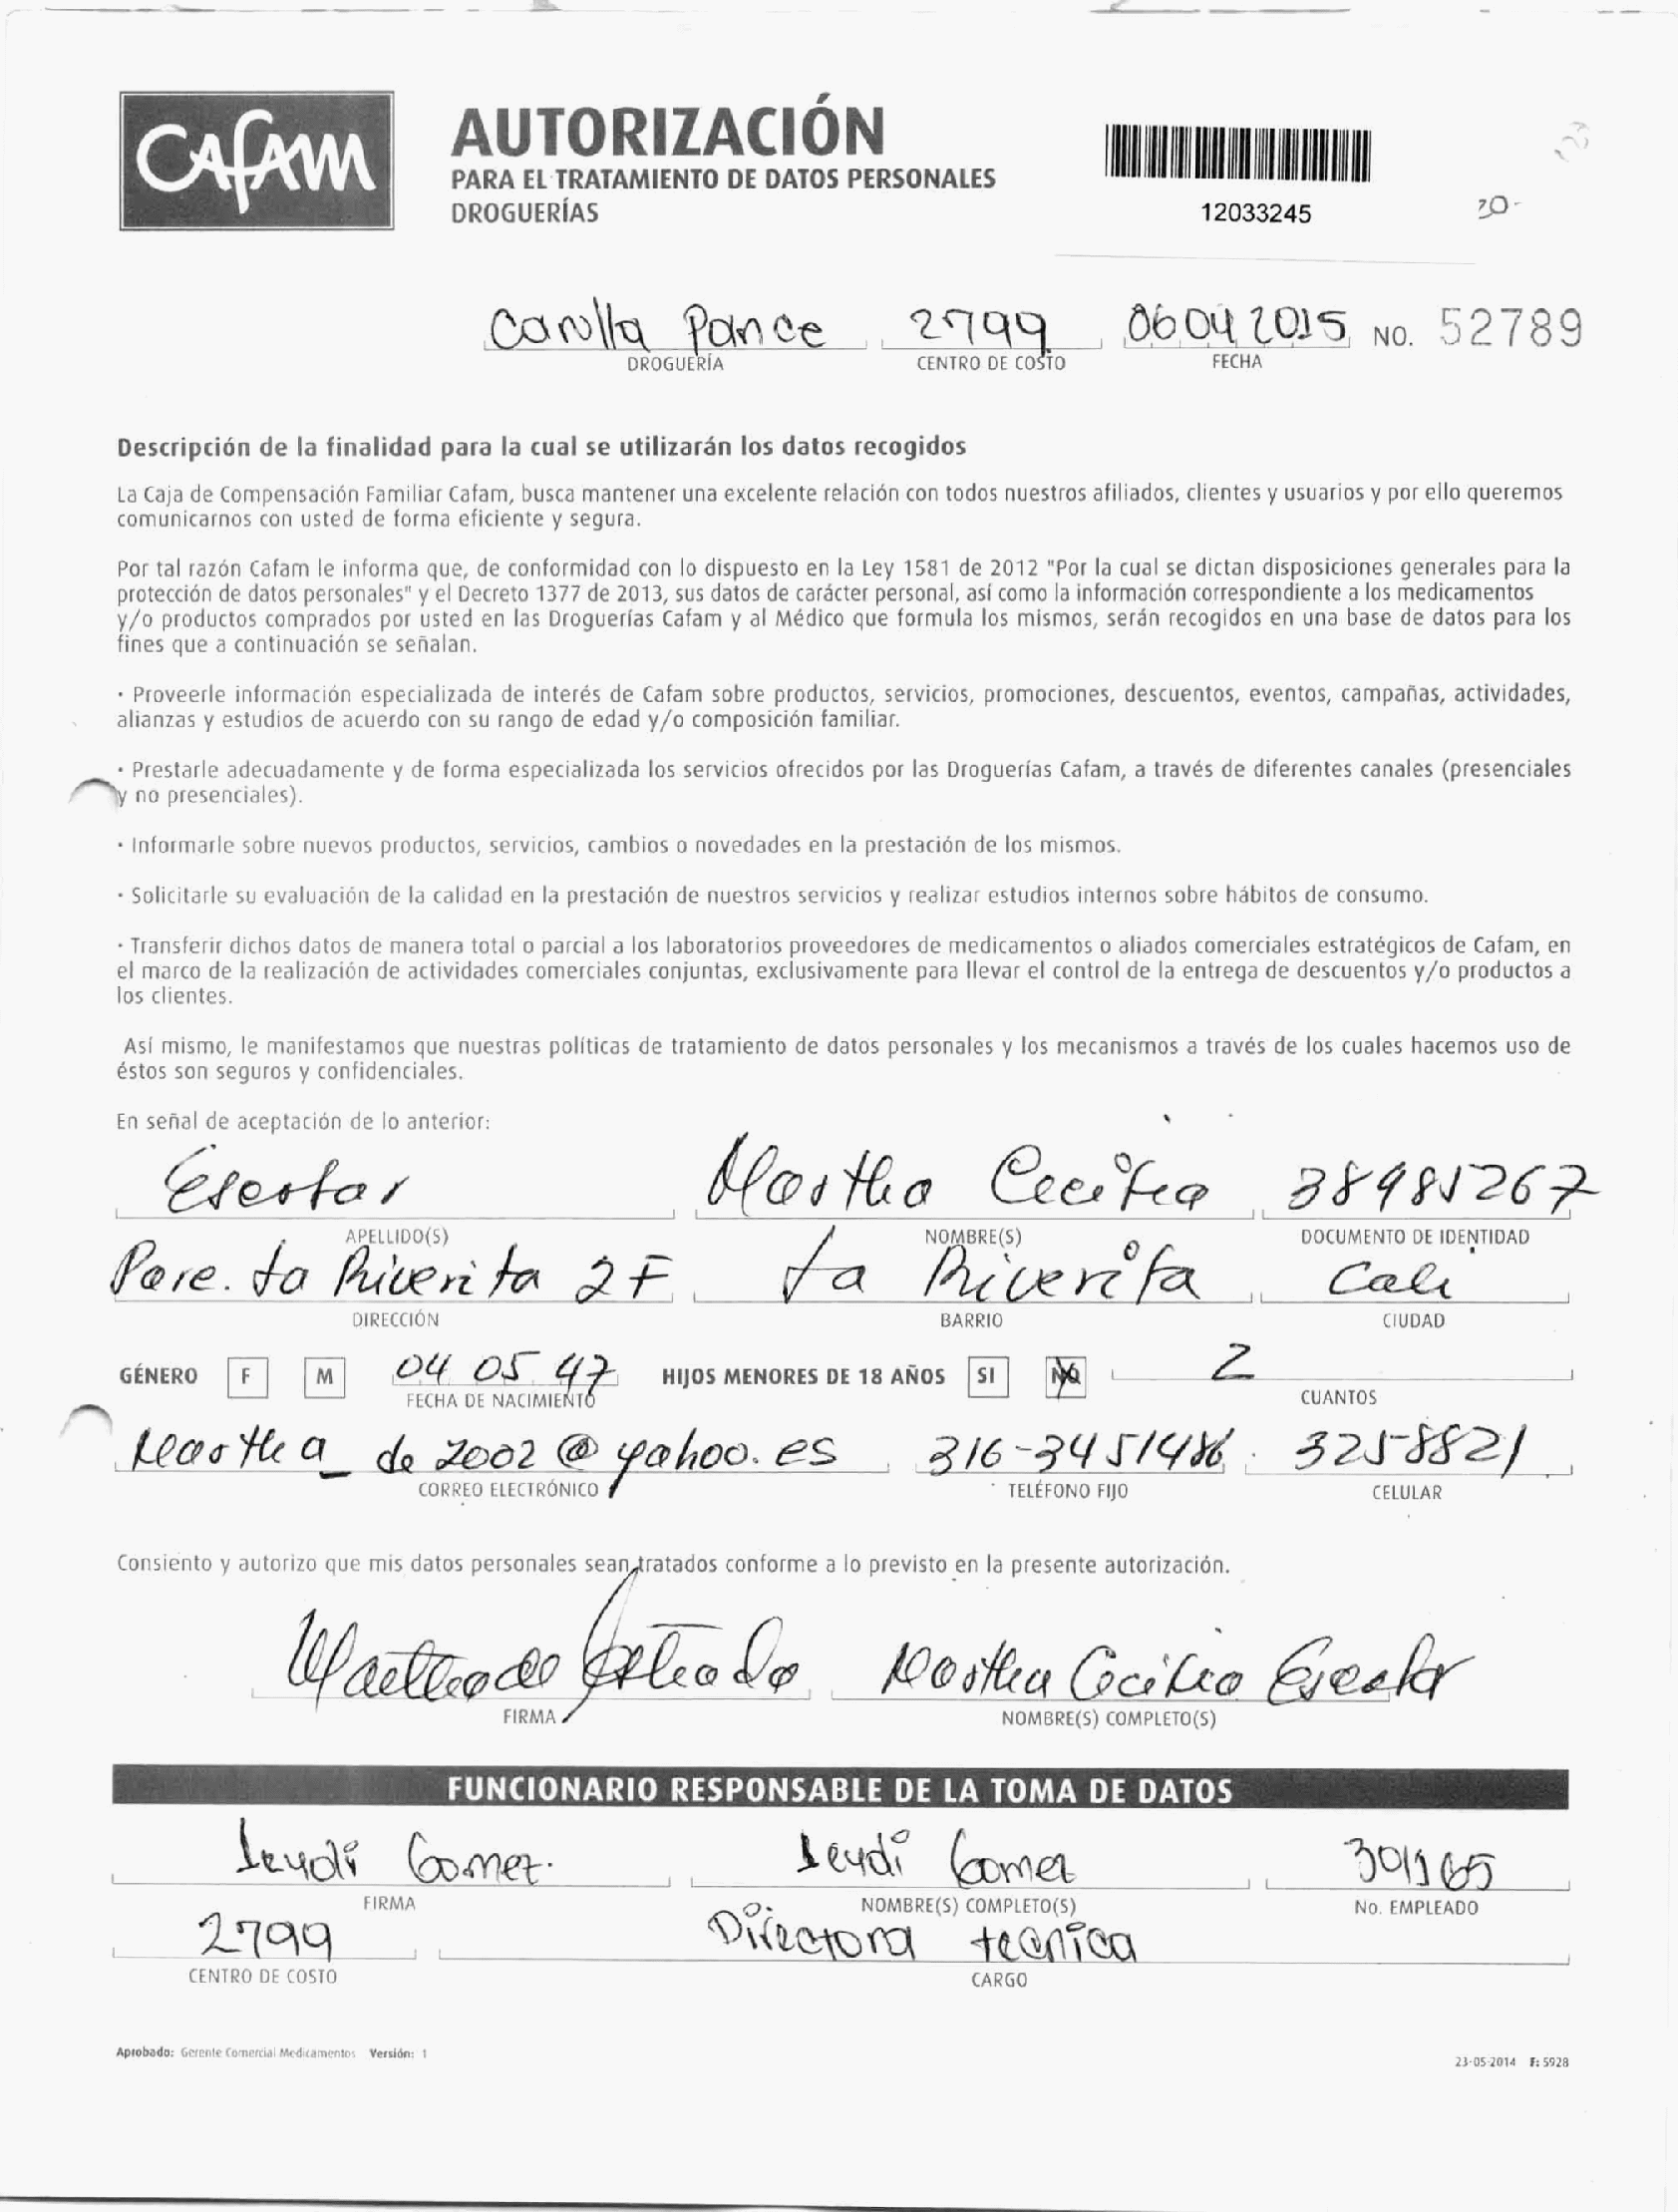 CAFAM
AUTORIZACIÓN
PARA EL TRATAMIENTO DE DATOS PERSONALES
DROGUERÍAS
12033245
Pance 2799 06 04 2015 NO. 52789
DROGUERÍA CENTRO DE COSTO FECHA
Descripción de la finalidad para la cual se utilizarán los datos recogidos
La Caja de Compensación Familiar Cafam, busca mantener una excelente relación con todos nuestros afiliados, clientes y usuarios y por ello queremos
comunicarnos con usted de forma eficiente y segura.
Por tal razón Cafam le informa que, de conformidad con lo dispuesto en la Ley 1581 de 2012 "Por la cual se dictan disposiciones generales para la
protección de datos personales" y el Decreto 1377 de 2013, sus datos de carácter personal, así como la información correspondiente a los medicamentos
y/o productos comprados por usted en las Droguerías Cafam y al Médico que formula los mismos, serán recogidos en una base de datos para los
fines que a continuación se señalan.
· Proveerle información especializada de interés de Cafam sobre productos, servicios, promociones, descuentos, eventos, campañas, actividades,
alianzas y estudios de acuerdo con su rango de edad y/o composición familiar.
· Prestarle adecuadamente y de forma especializada los servicios ofrecidos por las Droguerías Cafam, a través de diferentes canales (presenciales
y no presenciales).
· Informarle sobre nuevos productos, servicios, cambios o novedades en la prestación de los mismos.
· Solicitarle su evaluación de la calidad en la prestación de nuestros servicios y realizar estudios internos sobre hábitos de consumo.
· Transferir dichos datos de manera total o parcial a los laboratorios proveedores de medicamentos o aliados comerciales estratégicos de Cafam, en
el marco de la realización de actividades comerciales conjuntas, exclusivamente para llevar el control de la entrega de descuentos y/o productos a
los clientes.
Así mismo, le manifestamos que nuestras políticas de tratamiento de datos personales y los mecanismos a través de los cuales hacemos uso de
éstos son seguros y confidenciales.
En señal de aceptación de lo anterior:
Martha Cecilia 38981267
APELLIDO(S) NOMBRE(S) DOCUMENTO DE IDENTIDAD
Parc. La Riverita 2F La Riverita Cali
DIRECCIÓN BARRIO CIUDAD
GÉNERO F M 04 05 47 HIJOS MENORES DE 18 AÑOS SI NO 2
FECHA DE NACIMIENTO CUANTOS
Martha_de2002@yahoo.es 316-3451486 3258821
CORREO ELECTRÓNICO TELÉFONO FIJO CELULAR
Consiento y autorizo que mis datos personales sean tratados conforme a lo previsto en la presente autorización.
Martha Cecilia
FIRMA NOMBRE(S) COMPLETO(S)
FUNCIONARIO RESPONSABLE DE LA TOMA DE DATOS
Leydi Gomez. Leydi Gomez
FIRMA NOMBRE(S) COMPLETO(S) No. EMPLEADO
2799 Directora tecnica
CENTRO DE COSTO CARGO
Aprobado: Gerente Comercial Medicamentos Versión: 1
23-05-2014 F: 5928